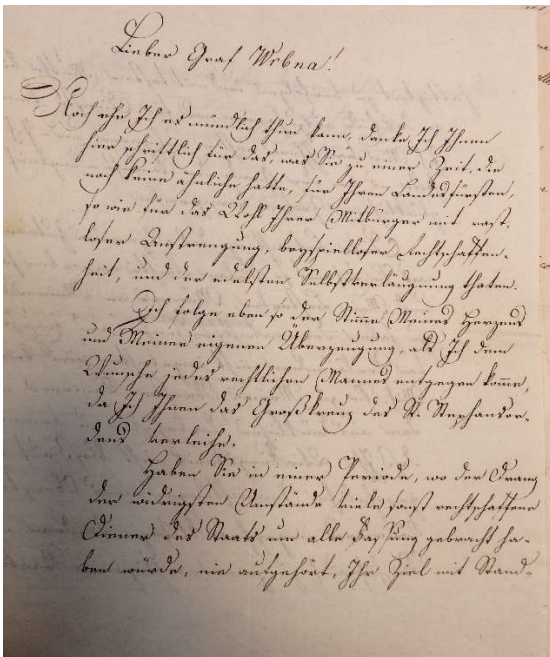 Lieber Graf Wrbna!
Noch ehe Ich es mündlich thun kann, danke Ich Ihnen
hier schriftlich für das, was Sie zu einer Zeit, die
noch keine ähnliche hatte, für Ihren Landesfürsten,
so wie für das Wohl Ihrer Mitbürger mit rast-
loser Anstrengung, beyspielloser Rechtschaffen-
heit, und der edelsten Selbstverläugnung thaten.
Ich folge eben so der Stimme Meines Herzens
und Meiner eigenen Überzeugung, als Ich dem
Wunsche jedes rechtlichen Mannes entgegen komme,
da Ich Ihnen das Großkreuz des St. Stephansor-
dens verleihe.
Haben Sie in einer Periode, wo der Drang
der widrigsten Umstände viele sonst rechtschaffene
Diener des Staats um alle Fassung gebracht ha-
ben würde, nie aufgehört, Ihr Ziel mit Stand-